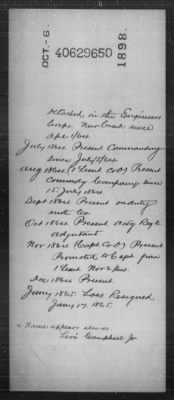 OCT.-6.
40629650
1898.
Detached in the Engineer
Corps. New Coast since
Apr 1/64.
July 1864. Present Commanding
since July 15/64.
Aug 1864. (1 Lieut Co D) Present
Commdg Company since
15 July 1864.
Sept 1864 Present on duty
with Co.
Oct 1864 Present actg Regt
adjutant
Nov 1864 (Capt Co D) Present
Promoted to Capt from
1 Lieut Nov 2/64.
Dec 1864 Present.
Jany 1865. Loss Resigned,
Jany 17, 1865.
* Name appears also as
Levi Campbell Jr